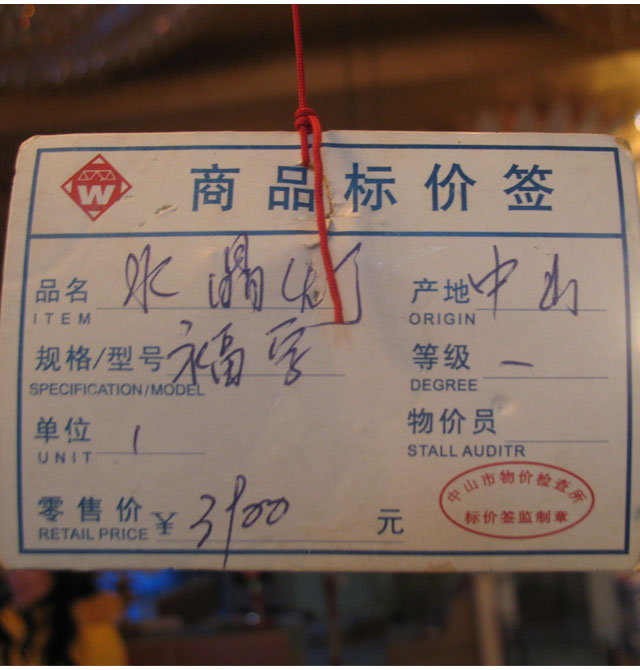 W
商品标价签
品名 水晶灯 产地 中山
ITEM ORIGIN
规格/型号 福字 等级 一
SPECIFICATION/MODEL DEGREE
单位 1 物价员
UNIT STALL AUDITR
零售价 ¥ 3900 元
RETAIL PRICE
中山市物价检查所
标价签监制章